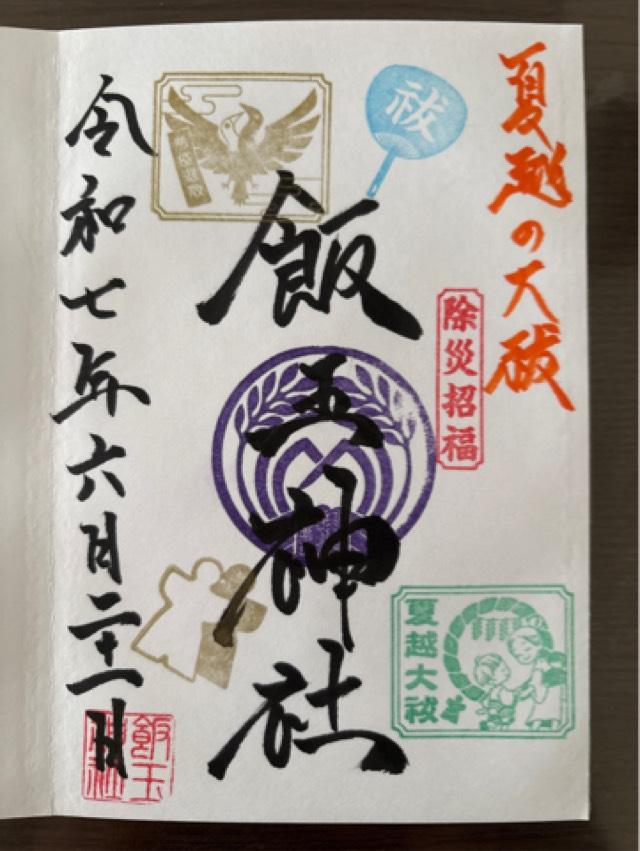 夏越の大祓
祓
除災招福
飯玉神社
夏越大祓
令和七年六月二十一日
飯玉
神社